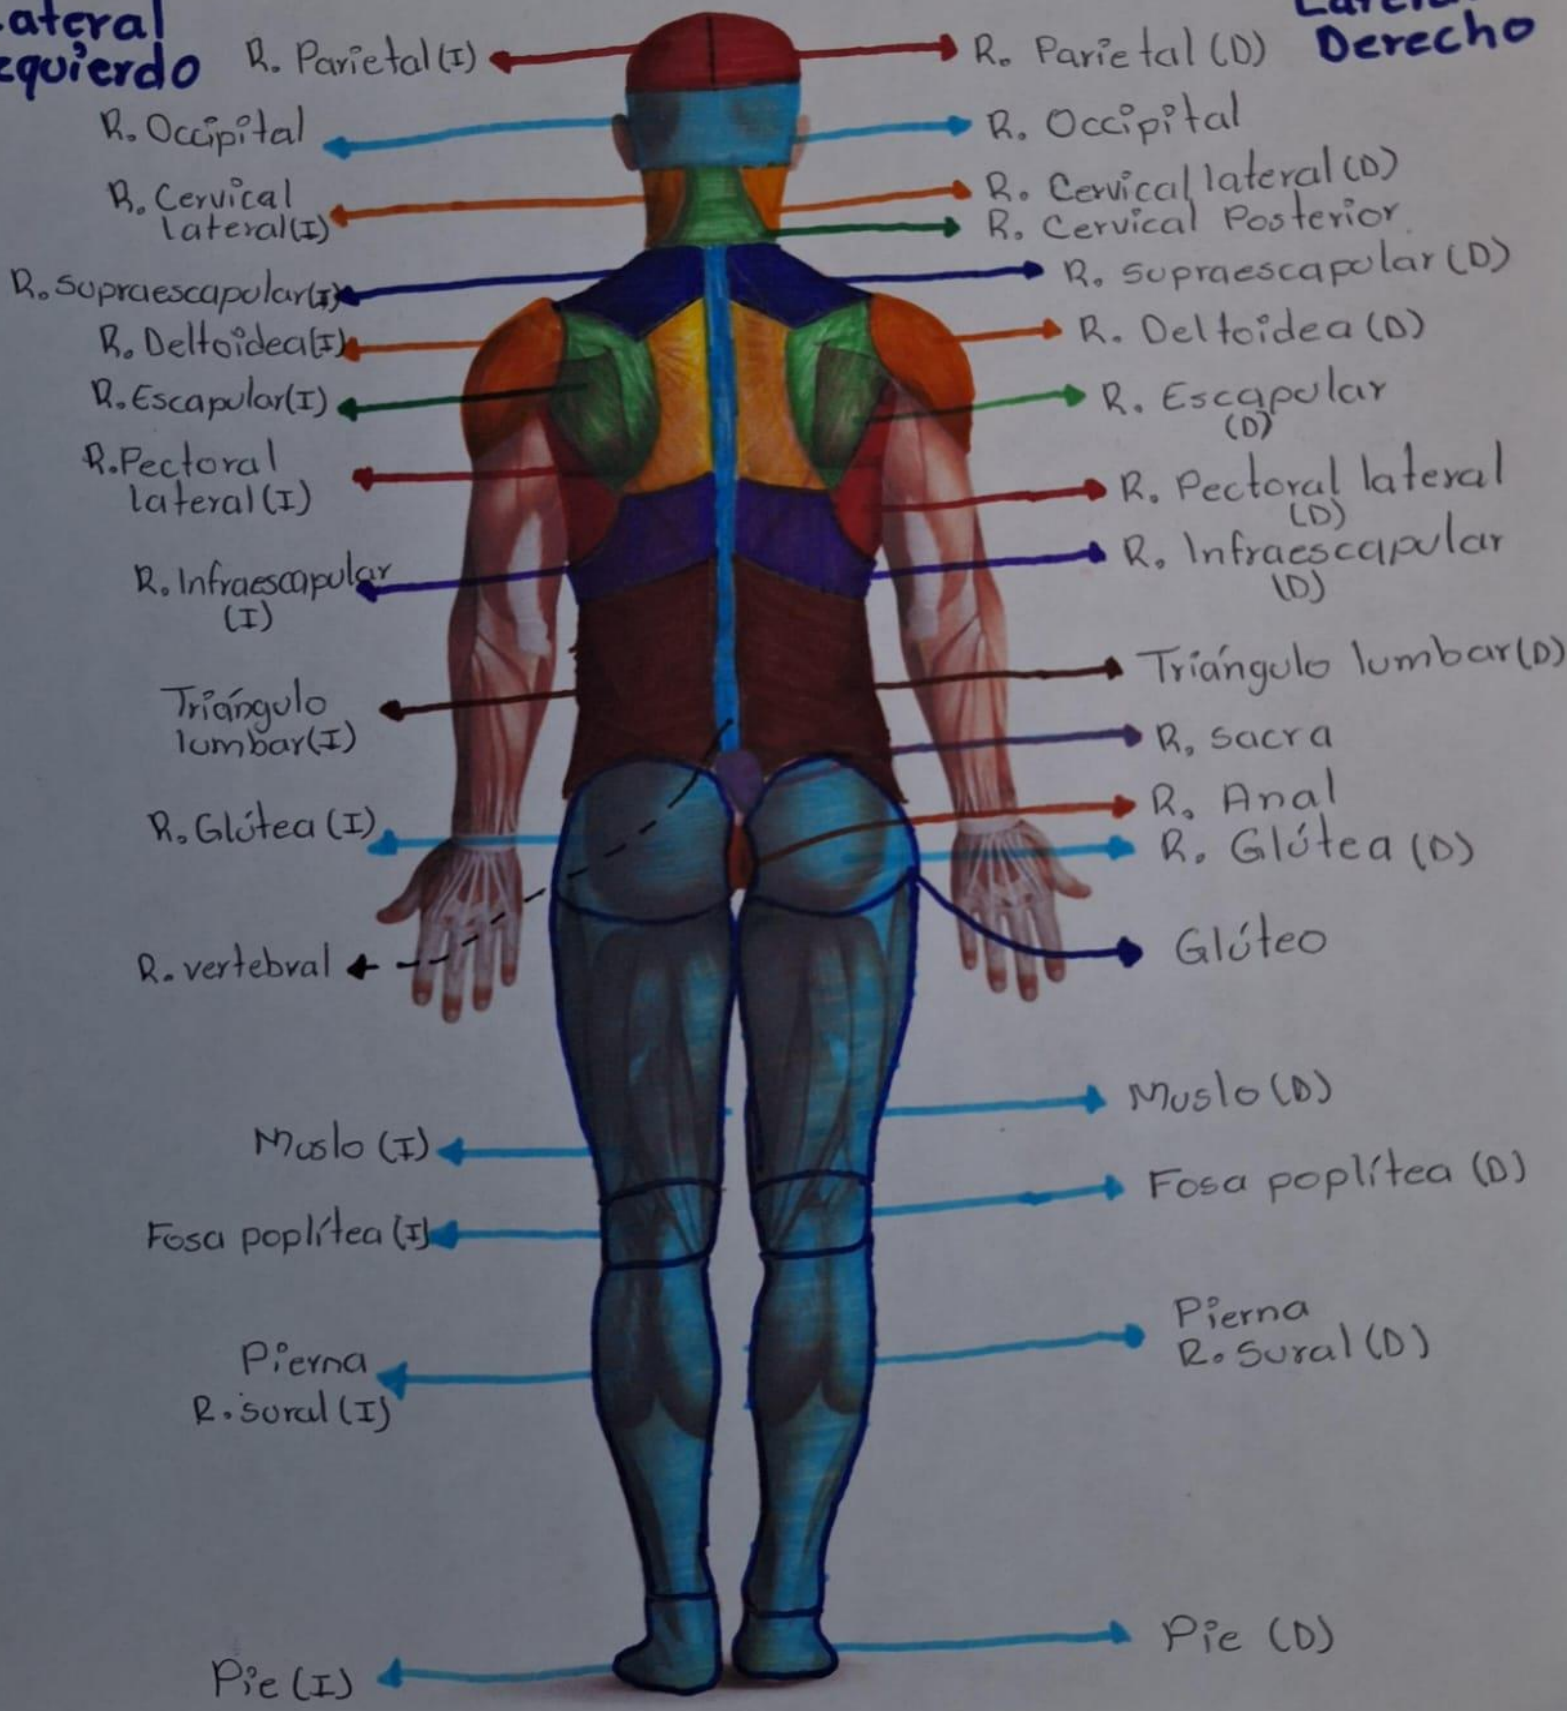 Lateral
Izquierdo
R. Parietal (I)
R. Occipital
R. Cervical
lateral (I)
R. Supraescapular (I)
R. Deltoidea (I)
R. Escapular (I)
R. Pectoral
lateral (I)
R. Infraescapular
(I)
Triángulo
lumbar (I)
R. Glútea (I)
R. vertebral
Muslo (I)
Fosa poplítea (I)
Pierna
R. sural (I)
Pie (I)
Lateral
Derecho
R. Parietal (D)
R. Occipital
R. Cervical lateral (D)
R. Cervical Posterior
R. Supraescapular (D)
R. Deltoidea (D)
R. Escapular
(D)
R. Pectoral lateral
(D)
R. Infraescapular
(D)
Triángulo lumbar (D)
R. sacra
R. Anal
R. Glútea (D)
Glúteo
Muslo (D)
Fosa poplítea (D)
Pierna
R. Sural (D)
Pie (D)